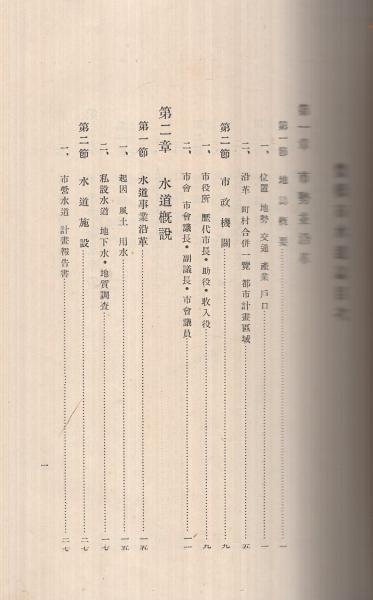 第一節 地誌概要 一
一、位置 地勢 交通 產業 戶口 一
二、沿革 町村合併一覽 都市計畫區域 五
第二節 市政機關 九
一、市役所 歷代市長・助役・收入役 九
二、市會 市會議長・副議長・市會議員 一一
第二章 水道槪說
第一節 水道事業沿革 一五
一、起因 風土 用水 一五
二、私設水道 地下水・地質調査 一七
第二節 水道施設 二七
一、市營水道 計畫報告書 二七
一